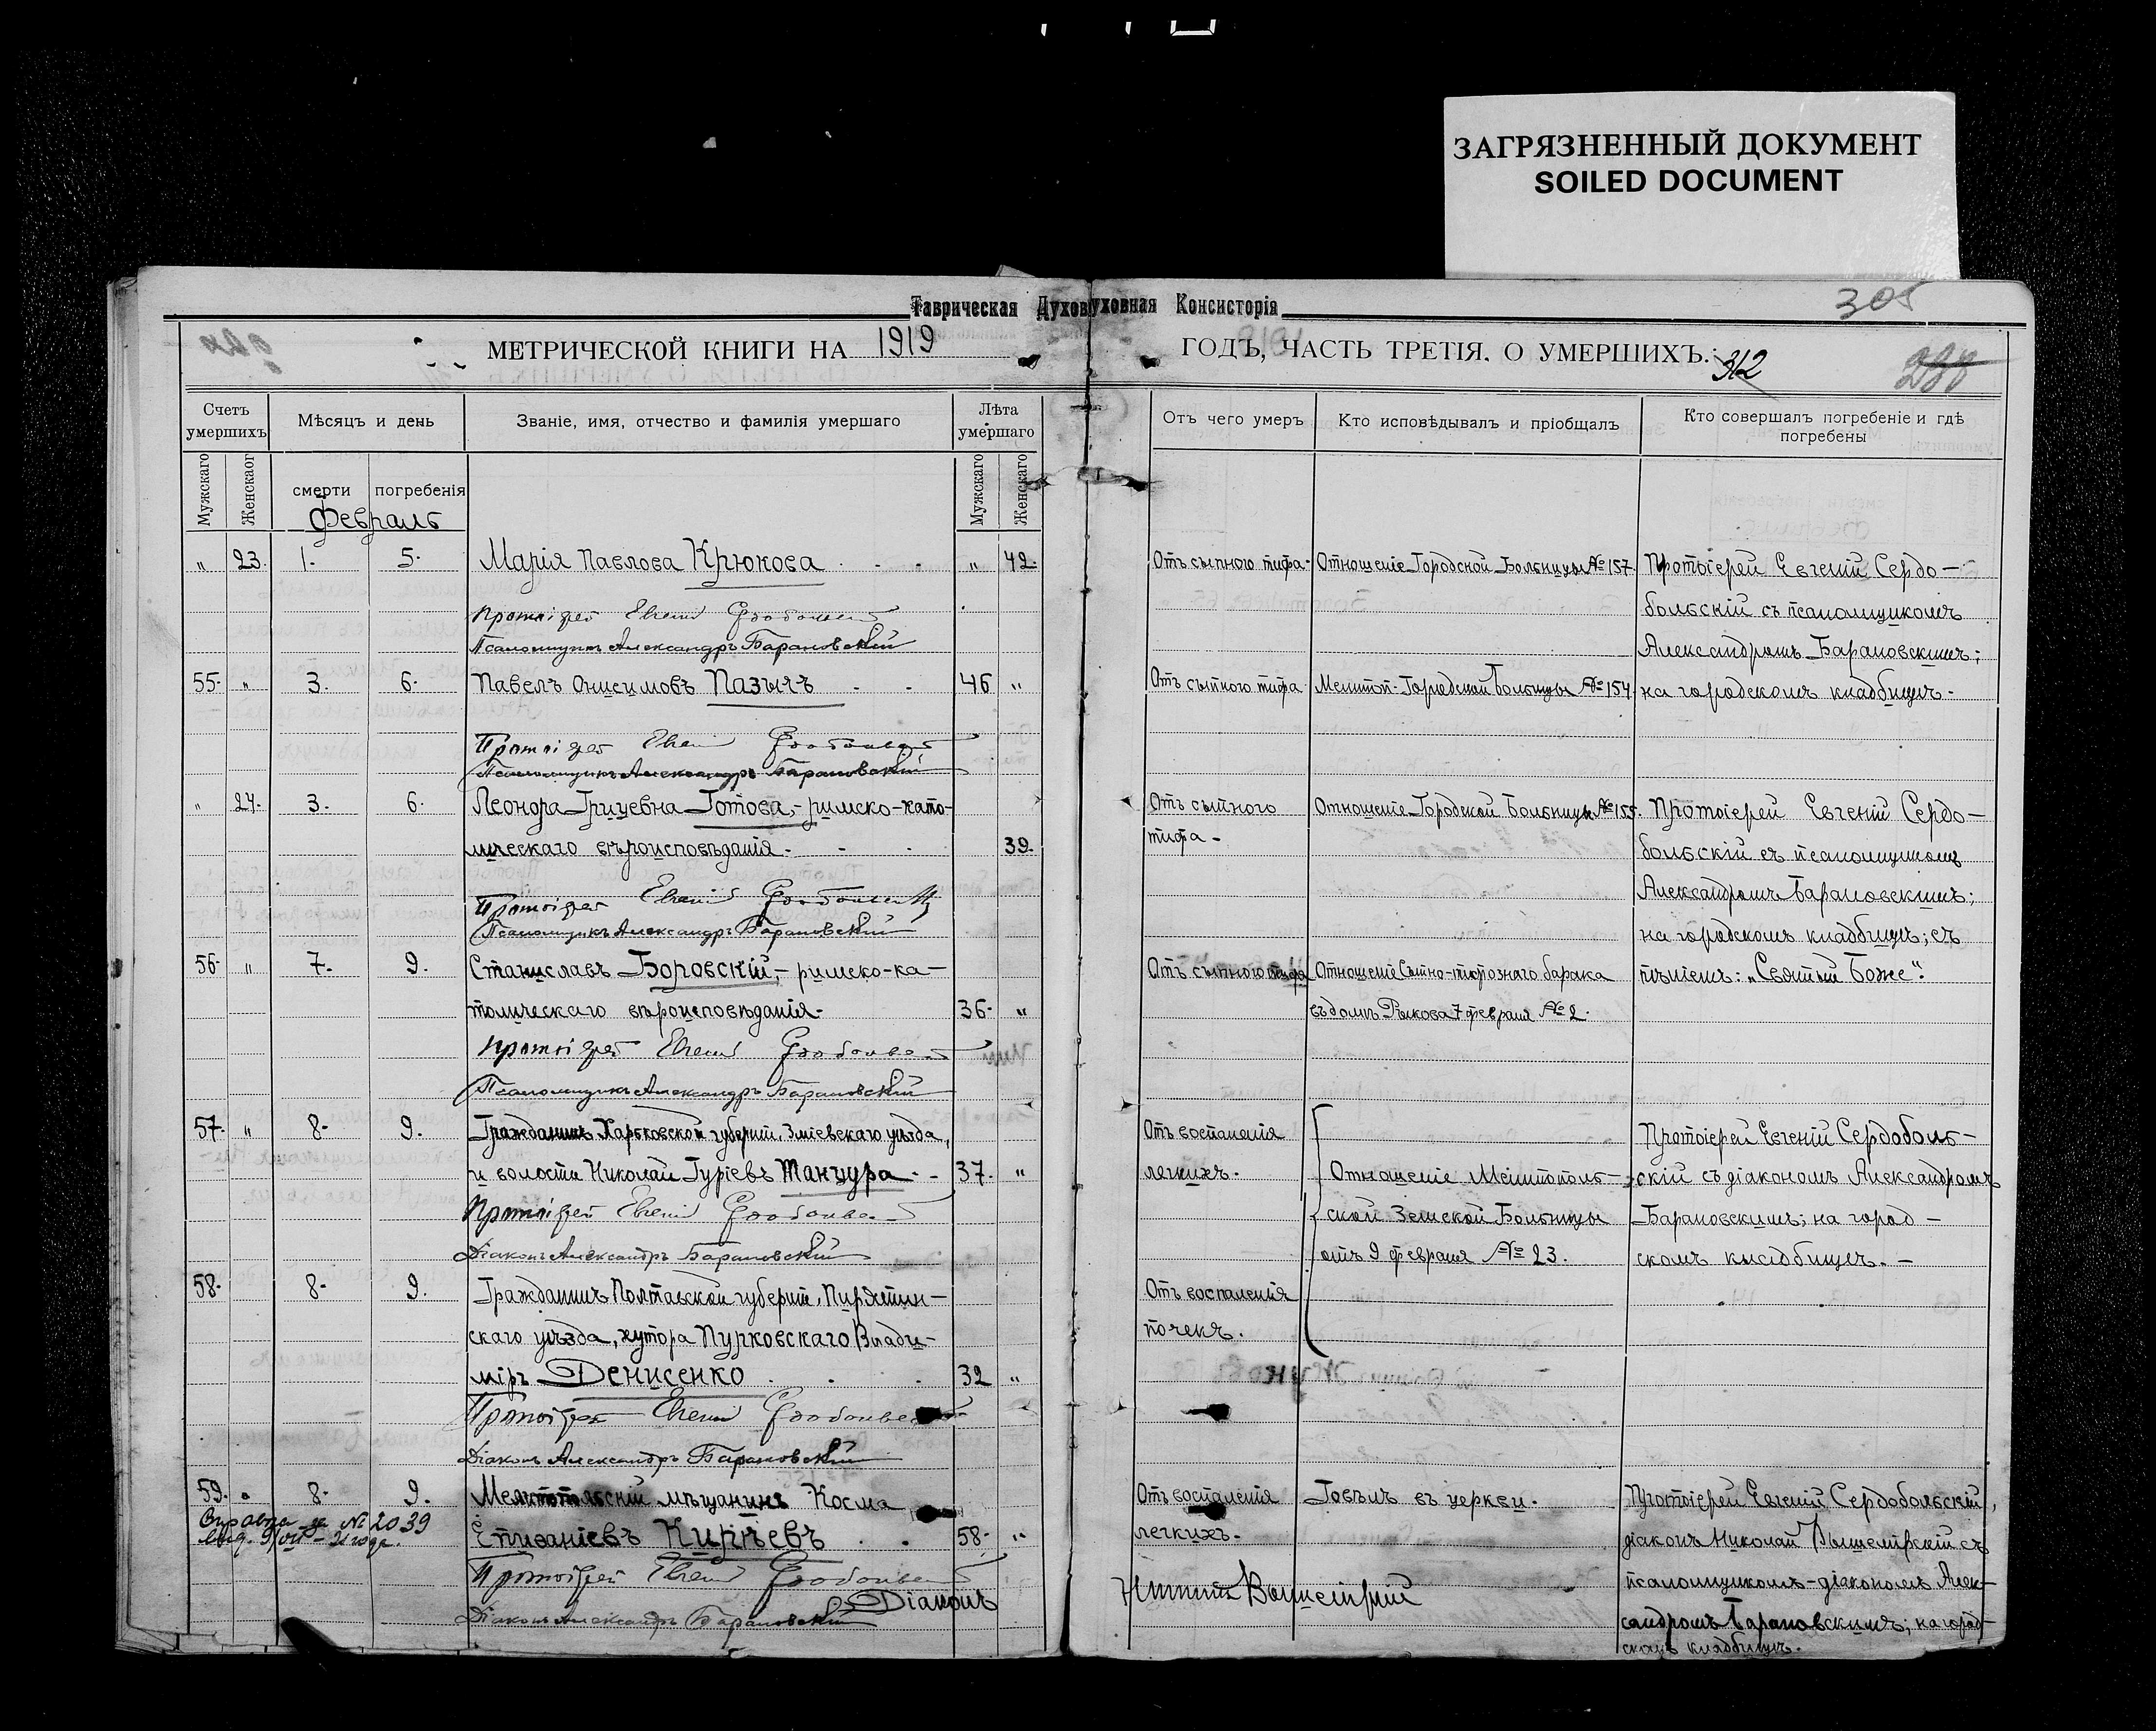 ЗАГРЯЗНЕННЫЙ ДОКУМЕНТ
SOILED DOCUMENT
Таврическая Духов
уховная Консисторія
305
МЕТРИЧЕСКОЙ КНИГИ НА 1919
ГОДЪ, ЧАСТЬ ТРЕТІЯ. О УМЕРШИХЪ.
312
288
Счетъ умершихъ
Мѣсяцъ и день
Званіе, имя, отчество и фамилія умершаго
Лѣта умершаго
Отъ чего умеръ
Кто исповѣдывалъ и пріобщалъ
Кто совершалъ погребеніе и гдѣ погребены
Мужскаго
Женскаог
смерти
погребенія
Мужскаго
Женскаго
Февраль
" 23. 1. 5. Марія Павлова Крюкова " 42.
Отъ сыпного тифа. Отношеніе Городской Больницы № 157. Протоіерей Евгеній Сердо-
Протоіерей Евгеній
больскій съ псаломщикомъ
Псаломщикъ Александръ Барановскій
Александромъ Барановскимъ;
55. " 3. 6. Павелъ Онисимовъ Пазычъ 46 "
Отъ сыпного тифа Мелитоп. Городской Больницы № 154. на городскомъ кладбищѣ.
Протоіерей Евгеній
Псаломщикъ Александръ Барановскій
" 24. 3. 6. Леонора Грицевна Готова, - римско-като-
лическаго вѣроисповѣданія. 39.
Отъ сыпного
тифа.
Отношеніе Городской Больницы № 155.
Протоіерей Евгеній Сердо-
больскій съ псаломщикомъ
Александромъ Барановскимъ;
на городскомъ кладбищѣ; съ
пѣніемъ: „Святый Боже".
Протоіерей Евгеній
Псаломщикъ Александръ Барановскій
56. " 7. 9. Станиславъ Боровскій, - римско-ка-
толическаго вѣроисповѣданія. 36. "
Отъ сыпного тифа
Отношеніе Сыпно-тифознаго барака
въ домѣ Рыкова 7 февраля № 2.
Протоіерей Евгеній
Псаломщикъ Александръ Барановскій
57. " 8. 9. Гражданинъ Харьковской губерніи, Зміевскаго уѣзда,
и волости Николай Гуріевъ Танчура. 37. "
Отъ воспаленія
легкихъ.
Отношеніе Мелитополь-
ской Земской Больницы
отъ 9 февраля № 23.
Протоіерей Евгеній Сердоболь-
скій съ діакономъ Александромъ
Барановскимъ; на город-
скомъ кладбищѣ. -
Протоіерей Евгеній
Діаконъ Александръ Барановскій
58. 8. 9. Гражданинъ Полтавской губерніи, Пирятин-
скаго уѣзда, хутора Пурковскаго Влади-
міръ Денисенко 32 "
Отъ воспаленія
почекъ.
Протоіерей Евгеній
Діаконъ Александръ Барановскій
59. " 8. 9. Мелитопольскій мѣщанинъ Косма
Справка за № 2039
Епифаніевъ Кирѣевъ 58. "
Отъ воспаленія
легкихъ.
Говѣлъ въ церкви.
Протоіерей Евгеній Сердобольскій,
діаконъ Николай Вышемірскій съ
псаломщикомъ-діакономъ Алек-
сандромъ Барановскимъ; на город-
скомъ кладбищѣ.
Протоіерей Евгеній
Діаконъ
Діаконъ Александръ Барановскій